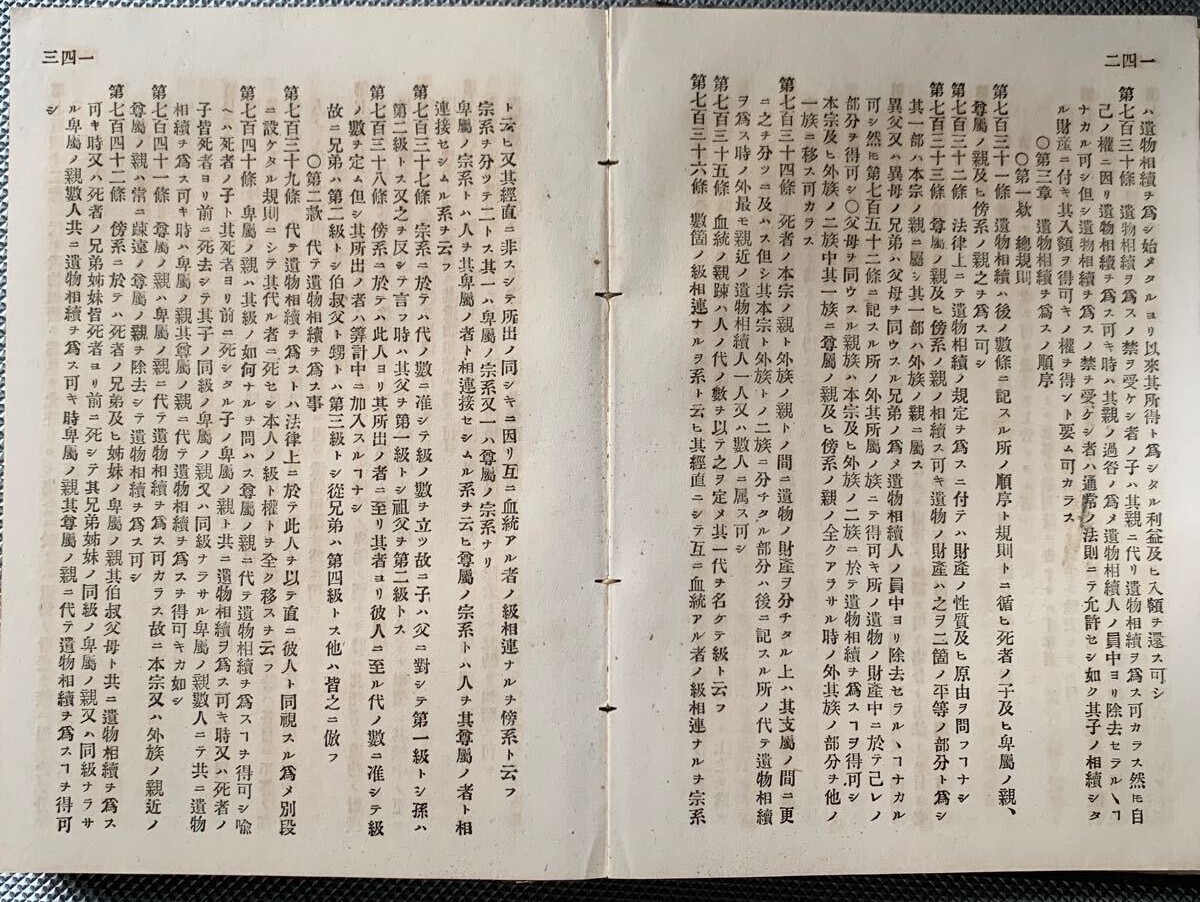 一四二
ハ遺物相續ヲ爲シ始メタルヨリ以來其所得ト爲シタル利益及ヒ入額ヲ還ス可シ
第七百三十條　遺物相續ヲ爲スノ禁ヲ受ケシ者ノ子ハ其親ニ代リ遺物相續ヲ爲ス可カラス然ヒ自
己ノ權ニ因リ遺物相續ヲ爲ス可キ時ハ其親ノ過咎ノ爲メ遺物相續人ノ員中ヨリ除去セラルヽヿ
ナカル可シ但シ遺物相續ヲ爲スノ禁ヲ受ケシ者ハ通常ノ法則ニテ允許セシ如ク其子ノ相續シタ
ル財產ニ付キ其入額ヲ得可キノ權ヲ得ント要ム可カラス
〇第三章　遺物相續ヲ爲スノ順序
〇第一欵　總規則
第七百三十一條　遺物相續ハ後ノ數條ニ記スル所ノ順序ト規則トニ循ヒ死者ノ子及ヒ卑屬ノ親、
尊屬ノ親及ヒ傍系ノ親之ヲ爲ス可シ
第七百三十二條　法律上ニテ遺物相續ノ規定ヲ爲スニ付テハ財產ノ性質及ヒ原由ヲ問フヿナシ
第七百三十三條　尊屬ノ親及ヒ傍系ノ親ノ相續ス可キ遺物ノ財產ハ之ヲ二箇ノ平等ノ部分ト爲シ
其一部ハ本宗ノ親ニ屬シ其一部ハ外族ノ親ニ屬ス
異父又ハ異母ノ兄弟ハ父母ヲ同ウスル兄弟ノ爲メ遺物相續人ノ員中ヨリ除去セラルヽヿナカル
可シ然ヒ第七百五十二條ニ記スル所ノ外其所屬ノ族ニテ得可キ所ノ遺物ノ財產中ニ於テ己レノ
部分ヲ得可シ〇父母ヲ同ウスル親族ハ本宗及ヒ外族ノ二族ニ於テ遺物相續ヲ爲スヿヲ得可シ
本宗及ヒ外族ノ二族中其一族ニ尊屬ノ親及ヒ傍系ノ親ノ全クアラサル時ノ外其族ノ部分ヲ他ノ
一族ニ移ス可カラス
第七百三十四條　死者ノ本宗ノ親ト外族ノ親トノ間ニ遺物ノ財產ヲ分チタル上ハ其支屬ノ間ニ更
ニ之ヲ分ツニ及ハス但シ其本宗ト外族トノ二族ニ分チタル部分ハ後ニ記スル所ノ代テ遺物相續
ヲ爲ス時ノ外最モ親近ノ遺物相續人一人又ハ數人ニ属ス可シ
第七百三十五條　血統ノ親踈ハ人ノ代ノ數ヲ以テ之ヲ定メ其一代ヲ名ケテ級ト云フ
第七百三十六條　數箇ノ級相連ナルヲ系ト云ヒ其經直ニシテ互ニ血統アル者ノ級相連ナルヲ宗系
一四三
ト云ヒ又其經直ニ非スシテ所出ノ同シキニ因リ互ニ血統アル者ノ級相連ナルヲ傍系ト云フ
宗系ヲ分ツテ二トス其一ハ卑屬ノ宗系又一ハ尊屬ノ宗系ナリ
卑屬ノ宗系トハ人ヲ其卑屬ノ者ト相連接セシムル系ヲ云ヒ尊屬ノ宗系トハ人ヲ其尊屬ノ者ト相
連接セシムル系ヲ云フ
第七百三十七條　宗系ニ於テハ代ノ數ニ准シテ級ノ數ヲ立ツ故ニ子ハ父ニ對シテ第一級トシ孫ハ
第二級トス又之ヲ反シテ言フ時ハ其父ヲ第一級トシ祖父ヲ第二級トス
第七百三十八條　傍系ニ於テハ此人ヨリ其所出ノ者ニ至リ其者ヨリ彼人ニ至ル代ノ數ニ准シテ級
ノ數ヲ定ム但シ其所出ノ者ハ筭計中ニ加入スルヿナシ
故ニ兄弟ハ第二級トシ伯叔父ト甥トハ第三級トシ從兄弟ハ第四級トス他ハ皆之ニ倣フ
〇第二欵　代テ遺物相續ヲ爲ス事
第七百三十九條　代テ遺物相續ヲ爲ストハ法律上ニ於テ此人ヲ以テ直ニ彼人ト同視スル爲メ別段
ニ設ケタル規則ニシテ其代ル者ニ死セシ本人ノ級ト權トヲ全ク移スヲ云フ
第七百四十條　卑屬ノ親ハ其級ノ如何ナルヲ問ハス尊屬ノ親ニ代テ遺物相續ヲ爲スヿヲ得可シ喩
ヘハ死者ノ子ト其死者ヨリ前ニ死シタル子ノ卑屬ノ親ト共ニ遺物相續ヲ爲ス可キ時又ハ死者ノ
子皆死者ヨリ前ニ死去シテ其子ノ同級ノ卑屬ノ親又ハ同級ナラサル卑屬ノ親數人ニテ共ニ遺物
相續ヲ爲ス可キ時ハ卑屬ノ親其尊屬ノ親ニ代テ遺物相續ヲ爲スヲ得可キカ如シ
第七百四十一條　尊屬ノ親ハ卑屬ノ親ニ代テ遺物相續ヲ爲ス可カラス故ニ本宗又ハ外族ノ親近ノ
尊屬ノ親ハ常ニ疎遠ノ尊屬ノ親ヲ除去シテ遺物相續ヲ爲ス可シ
第七百四十二條　傍系ニ於テハ死者ノ兄弟及ヒ姉妹ノ卑屬ノ親其伯叔父母ト共ニ遺物相續ヲ爲ス
可キ時又ハ死者ノ兄弟姉妹皆死者ヨリ前ニ死シテ其兄弟姉妹ノ同級ノ卑屬ノ親又ハ同級ナラサ
ル卑屬ノ親數人共ニ遺物相續ヲ爲ス可キ時卑屬ノ親其尊屬ノ親ニ代テ遺物相續ヲ爲スヿヲ得可
シ